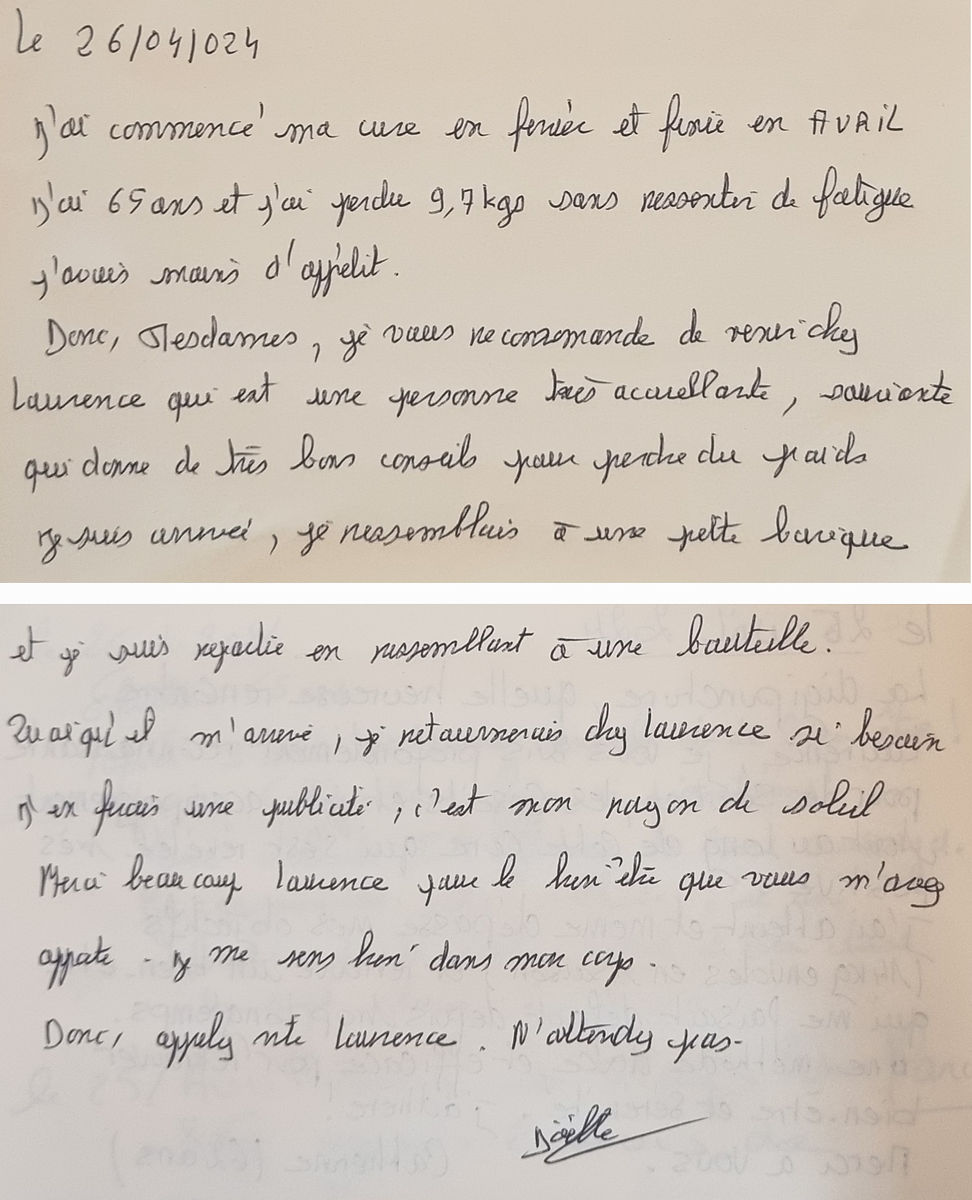 Le 26/04/024
J'ai commencé ma cure en fevriér et finie en AVRIL
J'ai 65 ans et j'ai perdu 9,7 kgs sans ressentir de fatigue
j'avais moins d'appétit.
Donc, Mesdames, je vous recommande de venir chez
Laurence qui est une personne très accueillante, souriante
qui donne de très bons conseils pour perdre du poids
Je suis arrivée, je ressemblais à une petite barique
et je suis repartie en ressemblant à une bouteille.
Quoiqu'il m'arrive, je retournerais chez Laurence si besoin
J'en ferais une publicité, c'est mon rayon de soleil
Merci beaucoup Laurence pour le bien être que vous m'avez
apporté. Je me sens bien dans mon corps.
Donc, appelez vite Laurence. N'attendez pas.
Joëlle